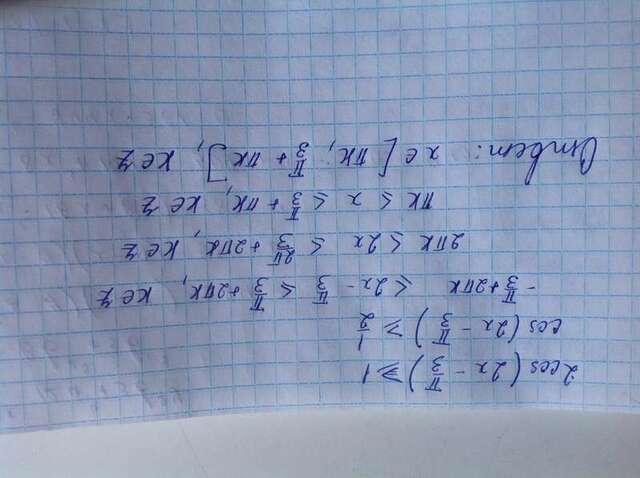 2cos(2x - π/3) ⩾ 1
cos(2x - π/3) ⩾ 1/2
-π/3 + 2πk ≤ 2x - π/3 ≤ π/3 + 2πk, k∈Z
2πk ≤ 2x ≤ 2π/3 + 2πk, k∈Z
πk ≤ x ≤ π/3 + πk, k∈Z
Ответ: x∈[πk; π/3 + πk], k∈Z